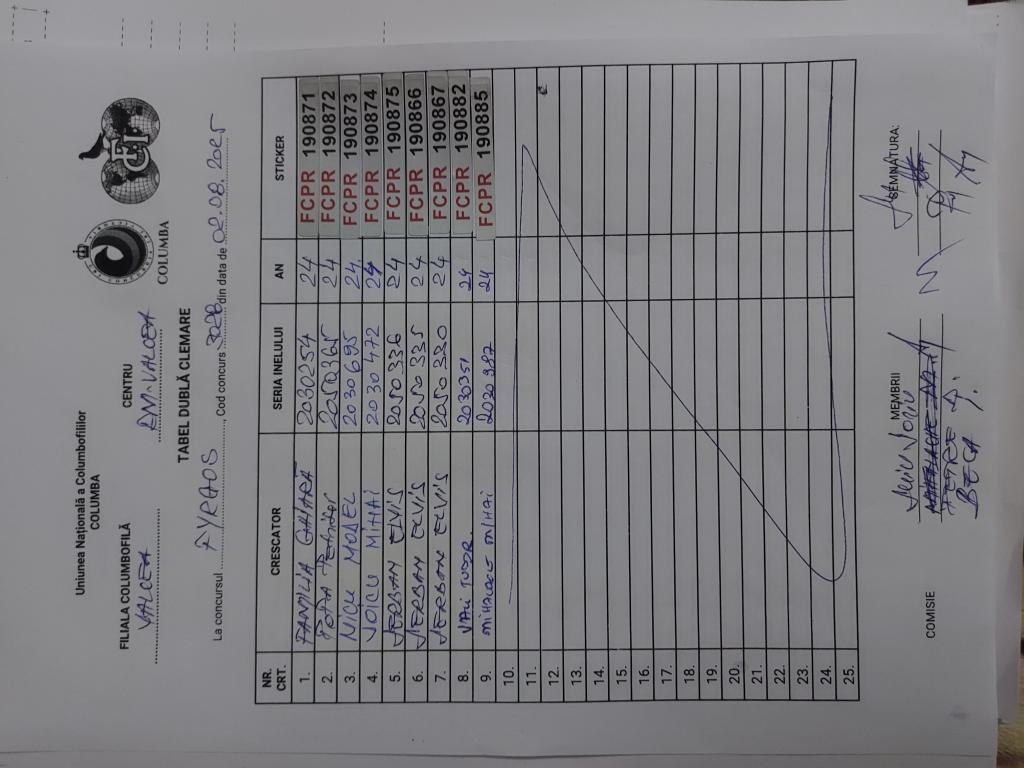 Uniunea Națională a Columbofililor
COLUMBA
FILIALA COLUMBOFILĂ CENTRU
VALCEA RM-VALCEA
COLUMBA
TABEL DUBLĂ CLEMARE
La concursul , Cod concurs din data de 02.08.2025
NR. CRT. CRESCATOR SERIA INELULUI AN STICKER
1. FAMILIA 2030254 24 FCPR 190871
2. POPA 2050365 24 FCPR 190872
3. NICU 2030695 24 FCPR 190873
4. VOICU MIHAI 2030472 24 FCPR 190874
5. SERBAN ELVIS 2050336 24 FCPR 190875
6. SERBAN ELVIS 2050335 24 FCPR 190866
7. SERBAN ELVIS 2050320 24 FCPR 190867
8. TUDOR 2030351 24 FCPR 190882
9. MIHAI 2030387 24 FCPR 190885
10.
11.
12.
13.
14.
15.
16.
17.
18.
19.
20.
21.
22.
23.
24.
25.
COMISIE MEMBRII SEMNĂTURA: